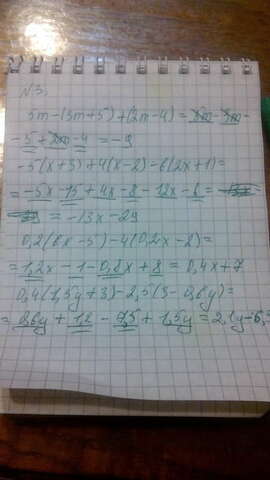 N 3.
5m-(3m+5)+(2m-4)=5m-3m-
-5+2m-4=-9
-5(x+3)+4(x-2)-6(2x+1)=
=-5x-15+4x-8-12x-6=
=-13x-29
0,2(6x-5)-4(0,2x-2)=
=1,2x-1-0,8x+8=0,4x+7
0,4(1,5y+3)-2,5(3-0,6y)=
=0,6y+1,2-7,5+1,5y=2,1y-6,3